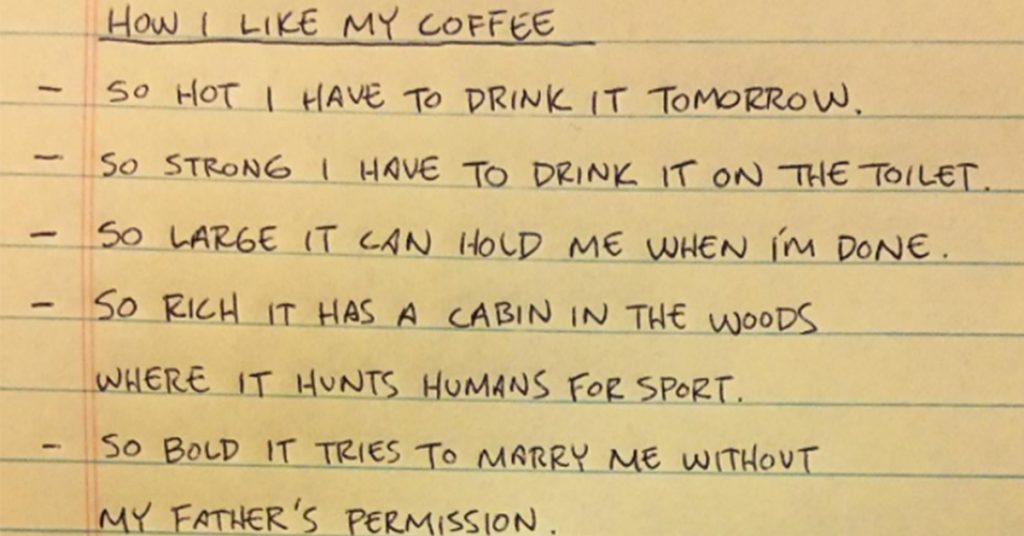 HOW I LIKE MY COFFEE
- SO HOT I HAVE TO DRINK IT TOMORROW.
- SO STRONG I HAVE TO DRINK IT ON THE TOILET.
- SO LARGE IT CAN HOLD ME WHEN I'M DONE.
- SO RICH IT HAS A CABIN IN THE WOODS
WHERE IT HUNTS HUMANS FOR SPORT.
- SO BOLD IT TRIES TO MARRY ME WITHOUT
MY FATHER'S PERMISSION.